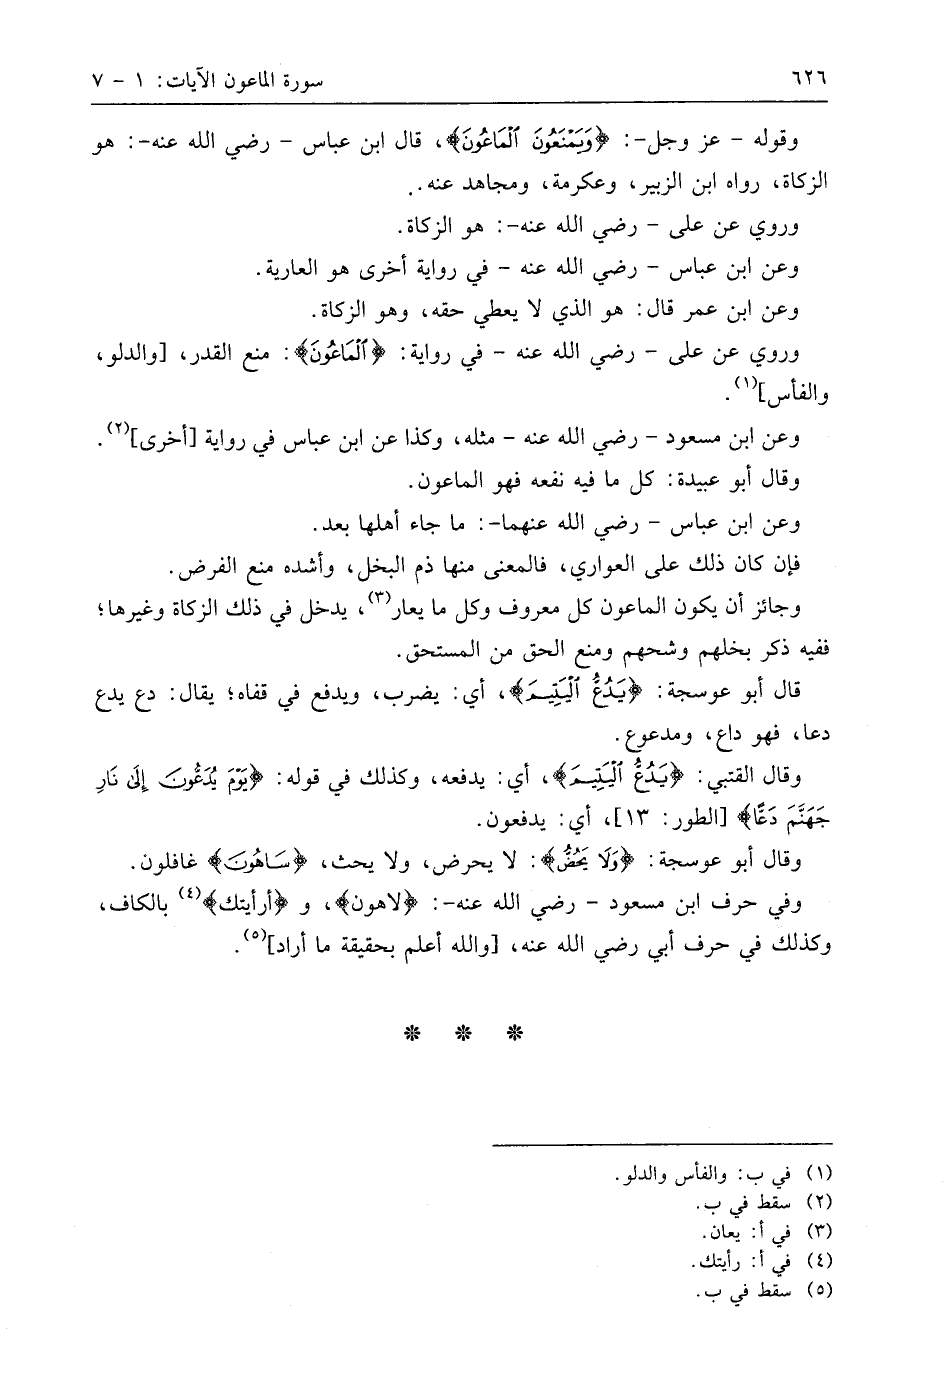 ٦٢٦
سورة الماعون الآيات: ١ - ٧
وقوله - عز وجل-: ﴿وَيَمْنَعُونَ ٱلْمَاعُونَ﴾، قال ابن عباس - رضي الله عنه-: هو
الزكاة، رواه ابن الزبير، وعكرمة، ومجاهد عنه.
وروي عن على - رضي الله عنه-: هو الزكاة.
وعن ابن عباس - رضي الله عنه - في رواية أخرى هو العارية.
وعن ابن عمر قال: هو الذي لا يعطي حقه، وهو الزكاة.
وروي عن على - رضي الله عنه - في رواية: ﴿ٱلْمَاعُونَ﴾: منع القدر، [والدلو،
والفأس](١).
وعن ابن مسعود - رضي الله عنه - مثله، وكذا عن ابن عباس في رواية [أخرى](٢).
وقال أبو عبيدة: كل ما فيه نفعه فهو الماعون.
وعن ابن عباس - رضي الله عنهما-: ما جاء أهلها بعد.
فإن كان ذلك على العواري، فالمعنى منها ذم البخل، وأشده منع الفرض.
وجائز أن يكون الماعون كل معروف وكل ما يعار(٣)، يدخل في ذلك الزكاة وغيرها؛
ففيه ذكر بخلهم وشحهم ومنع الحق من المستحق.
قال أبو عوسجة: ﴿يَدُعُّ ٱلْيَتِيمَ﴾، أي: يضرب، ويدفع في قفاه؛ يقال: دع يدع
دعا، فهو داع، ومدعوع.
وقال القتبي: ﴿يَدُعُّ ٱلْيَتِيمَ﴾، أي: يدفعه، وكذلك في قوله: ﴿يَوْمَ يُدَعُّونَ إِلَىٰ نَارِ
جَهَنَّمَ دَعًّا﴾ [الطور: ١٣]، أي: يدفعون.
وقال أبو عوسجة: ﴿وَلَا يَحُضُّ﴾: لا يحرض، ولا يحث، ﴿سَاهُونَ﴾ غافلون.
وفي حرف ابن مسعود - رضي الله عنه-: ﴿لاهون﴾، و ﴿أرأيتك﴾(٤) بالكاف،
وكذلك في حرف أبي رضي الله عنه، [والله أعلم بحقيقة ما أراد](٥).
* * *
(١) في ب: والفأس والدلو.
(٢) سقط في ب.
(٣) في أ: يعان.
(٤) في أ: رأيتك.
(٥) سقط في ب.